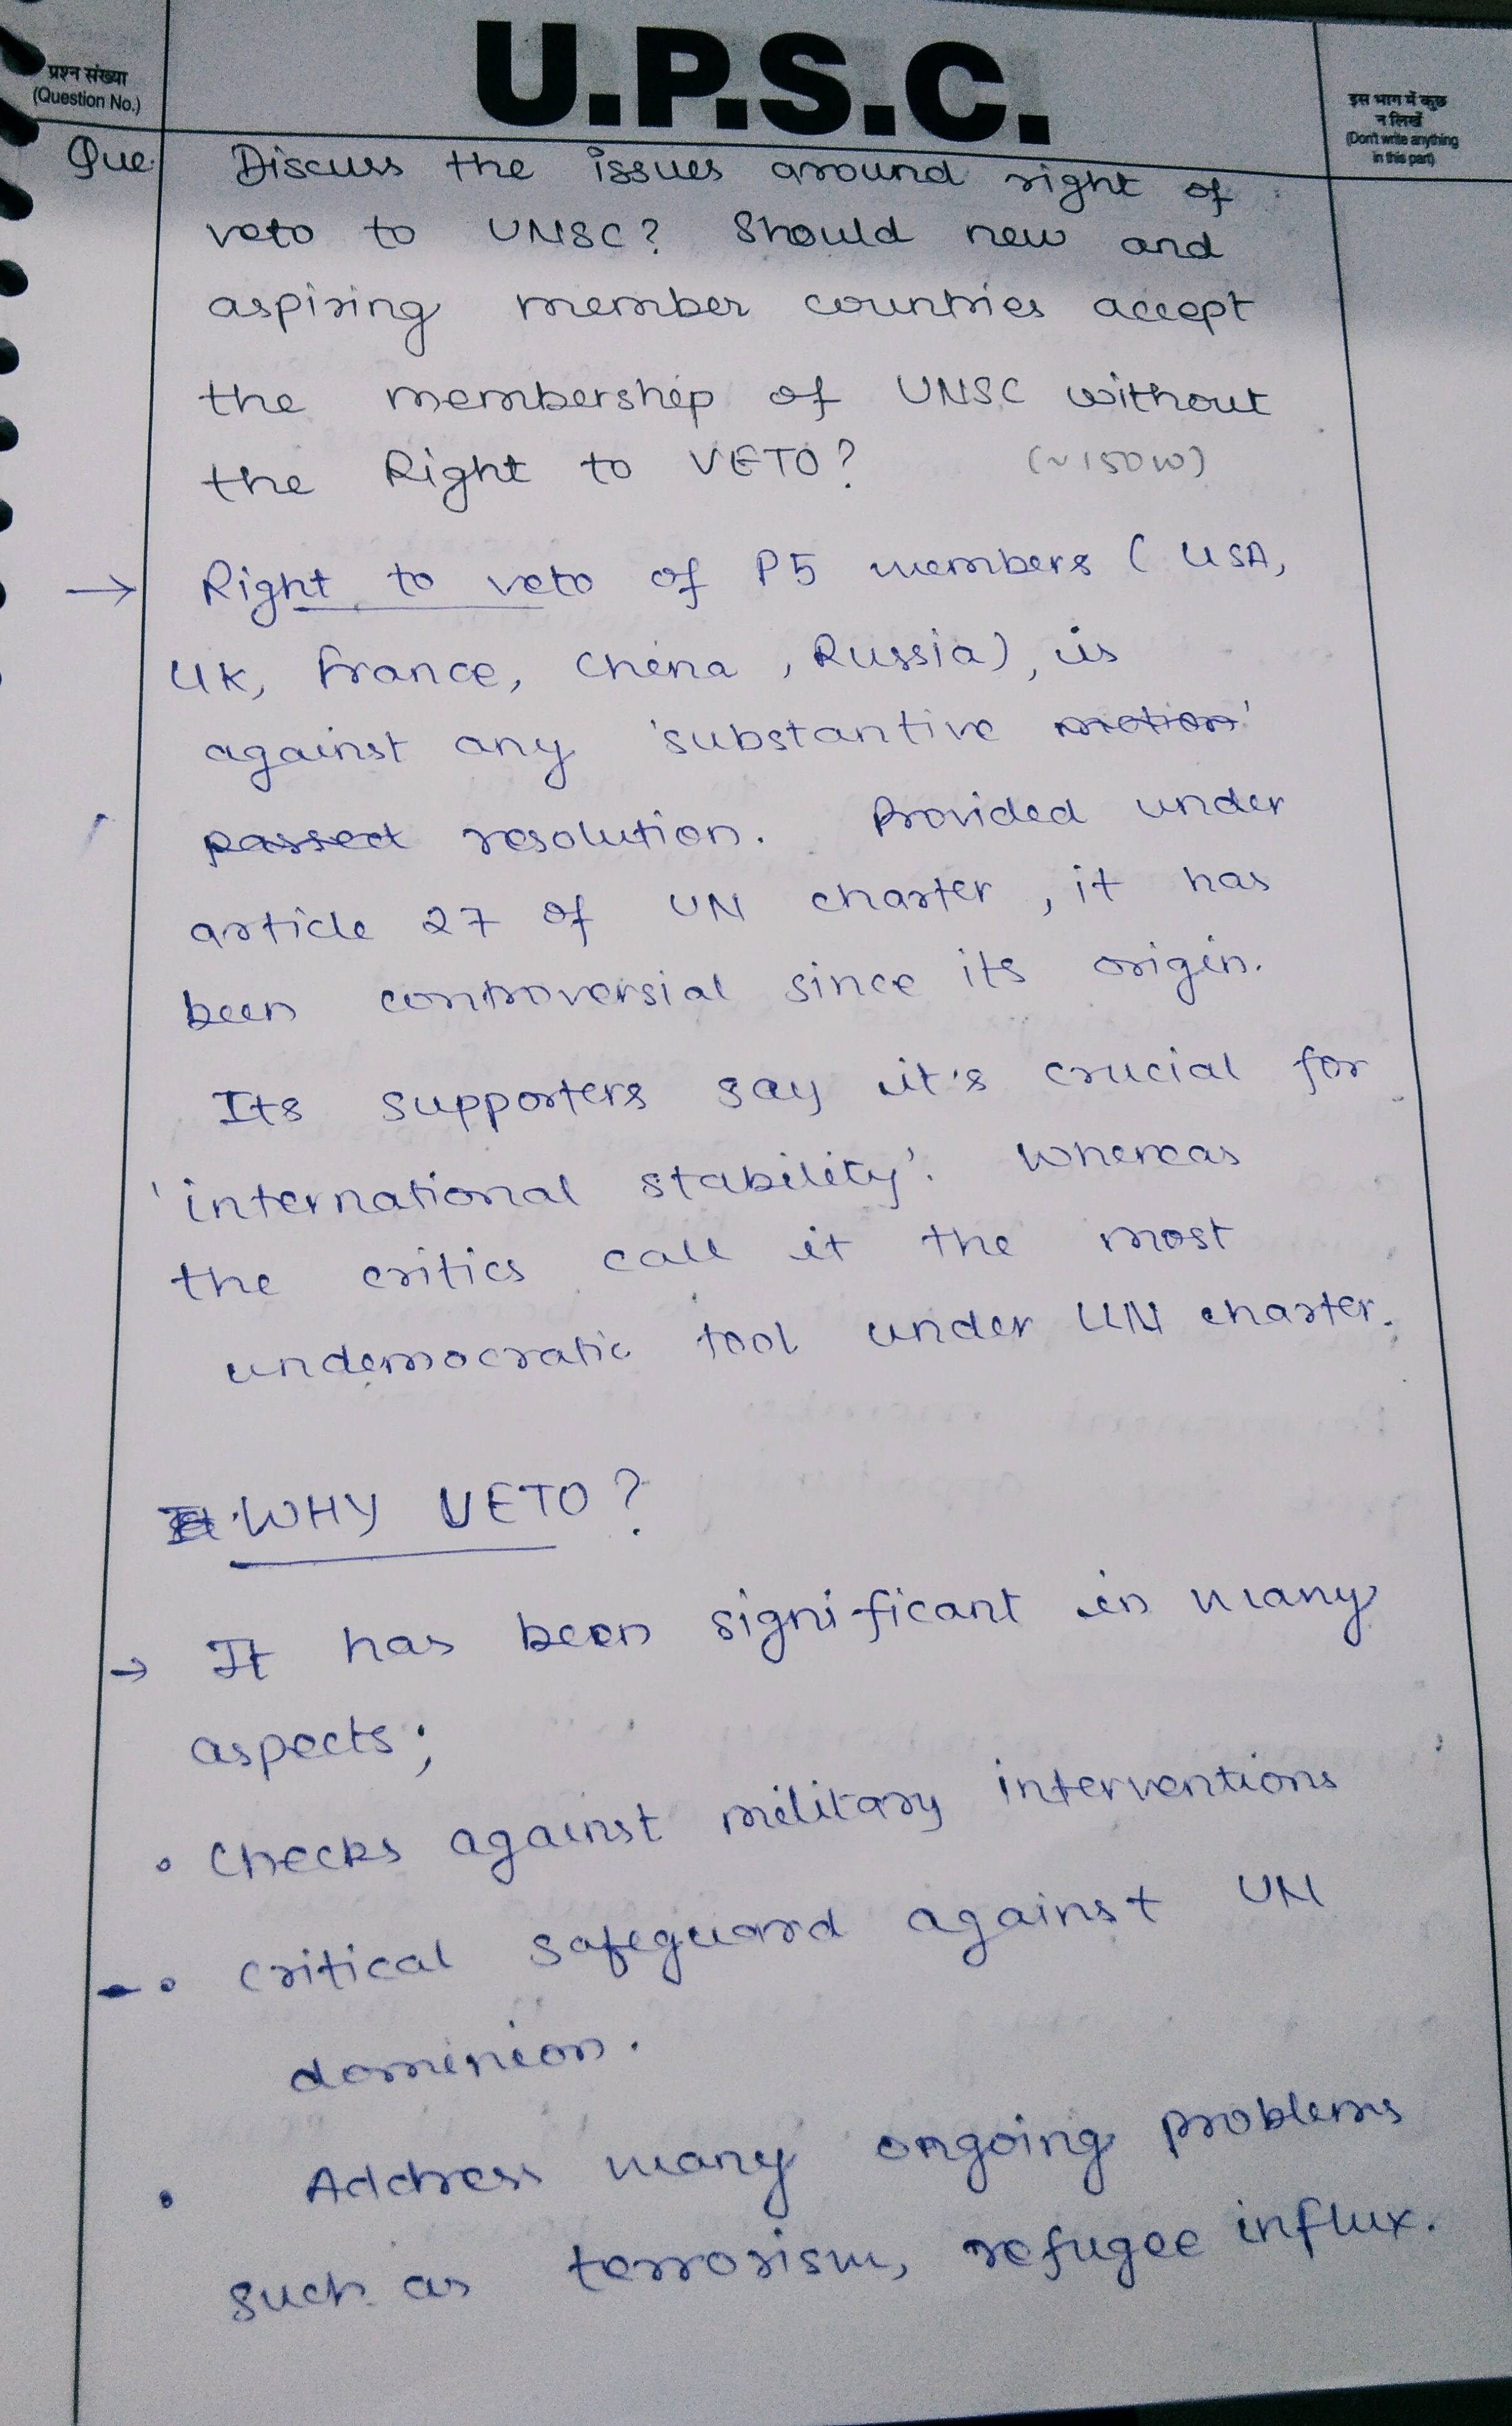 प्रश्न संख्या
(Question No.)
U.P.S.C.
इस भाग में कुछ
न लिखें
(Don't write anything
in this part)
Que. Discuss the issues around right of
veto to UNSC? Should new and
aspiring member countries accept
the membership of UNSC without
the Right to VETO? (~150W)
→ Right to veto of P5 members (USA,
UK, France, China, Russia), is
against any 'substantive motion'
passed resolution. Provided under
article 27 of UN charter, it has
been controversial since its origin.
Its supporters say it's crucial for
'international stability'. Whereas
the critics call it the most
undemocratic tool under UN charter.
WHY VETO?
→ It has been significant in many
aspects;
• Checks against military interventions
• Critical safeguard against UN
dominion.
• Address many ongoing problems
such as terrorism, refugee influx.